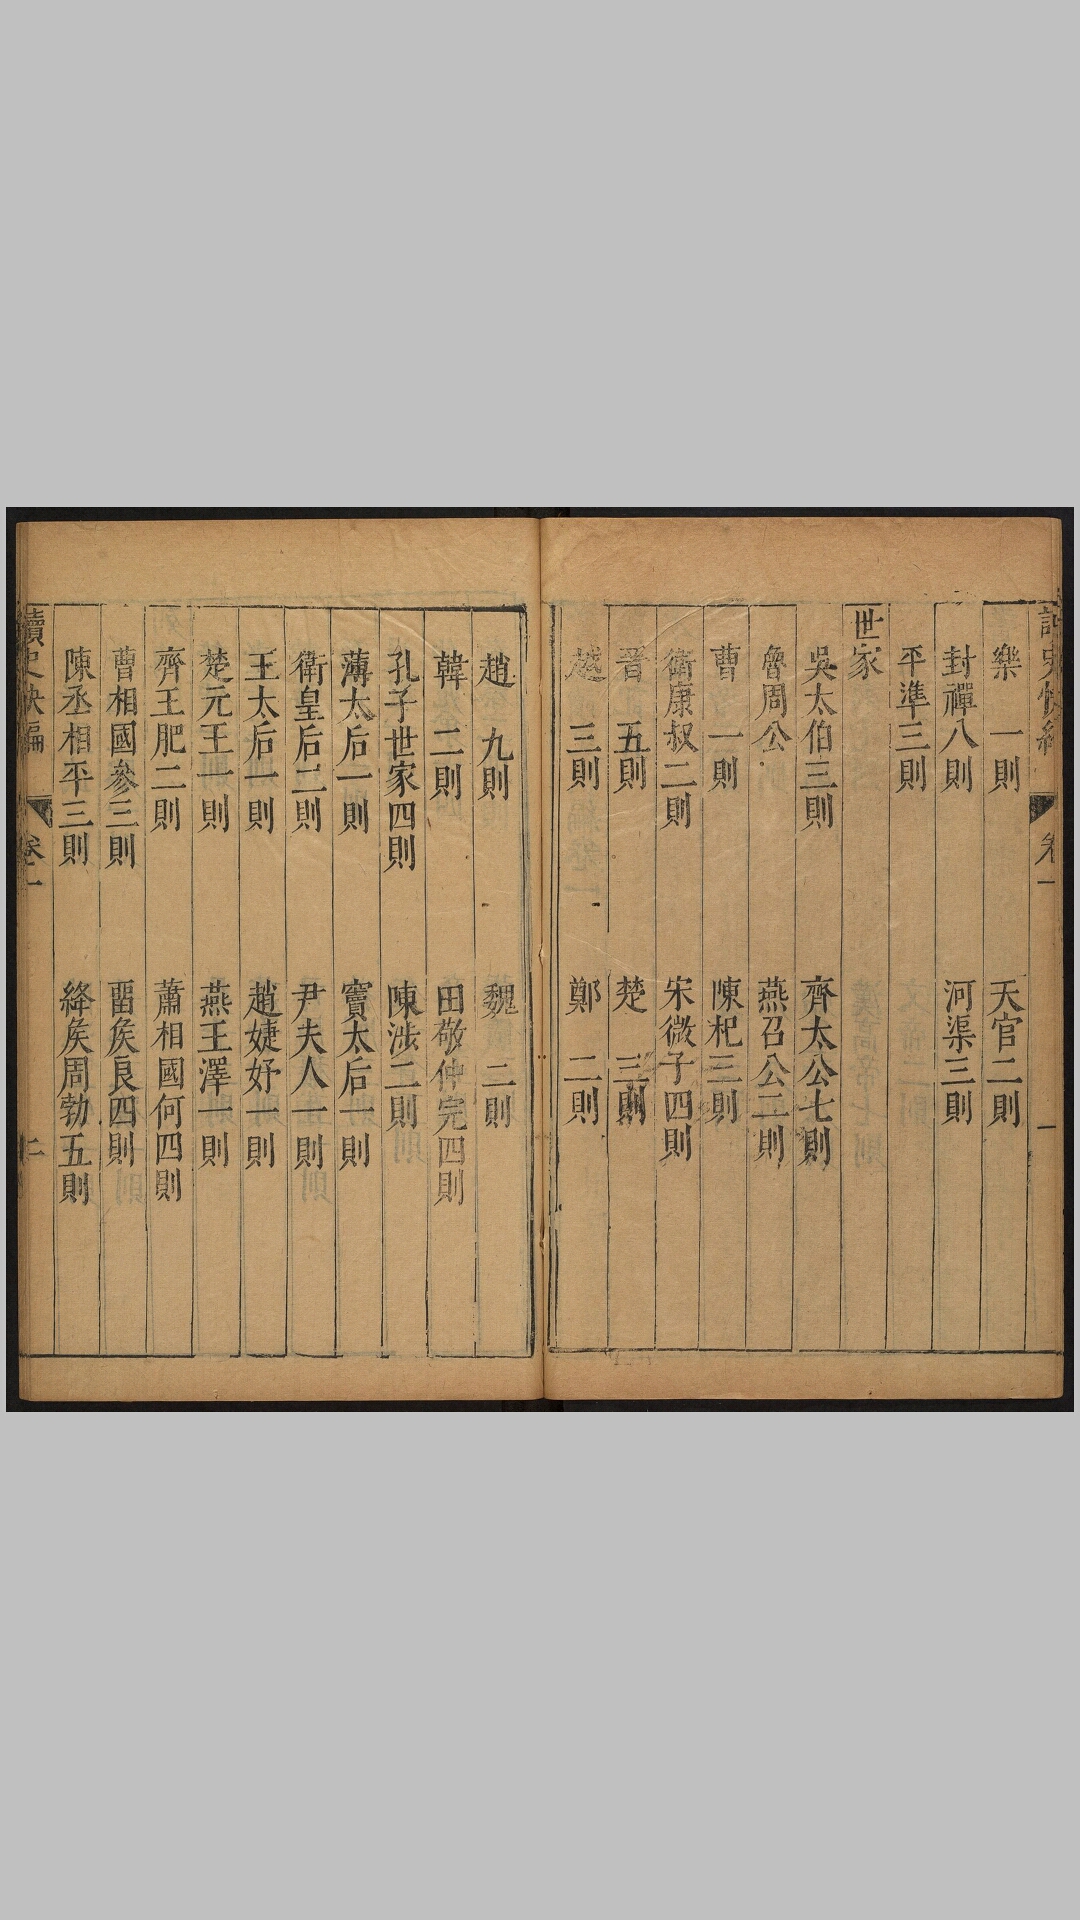 讀史快編
卷一
一
樂 一則 天官二則
封禪八則 河渠三則
平準三則
世家
吳太伯三則 齊太公七則
魯周公 燕召公二則
曹 一則 陳杞三則
衛康叔二則 宋微子四則
晉 五則 楚 三則
越 三則 鄭 二則
趙 九則 魏 二則
韓 二則 田敬仲完四則
孔子世家四則 陳涉二則
薄太后一則 竇太后一則
衛皇后二則 尹夫人一則
王太后一則 趙婕妤一則
楚元王一則 燕王澤一則
齊王肥二則 蕭相國何四則
曹相國參三則 畱矦良四則
陳丞相平三則 絳矦周勃五則
讀史快編
卷一
二